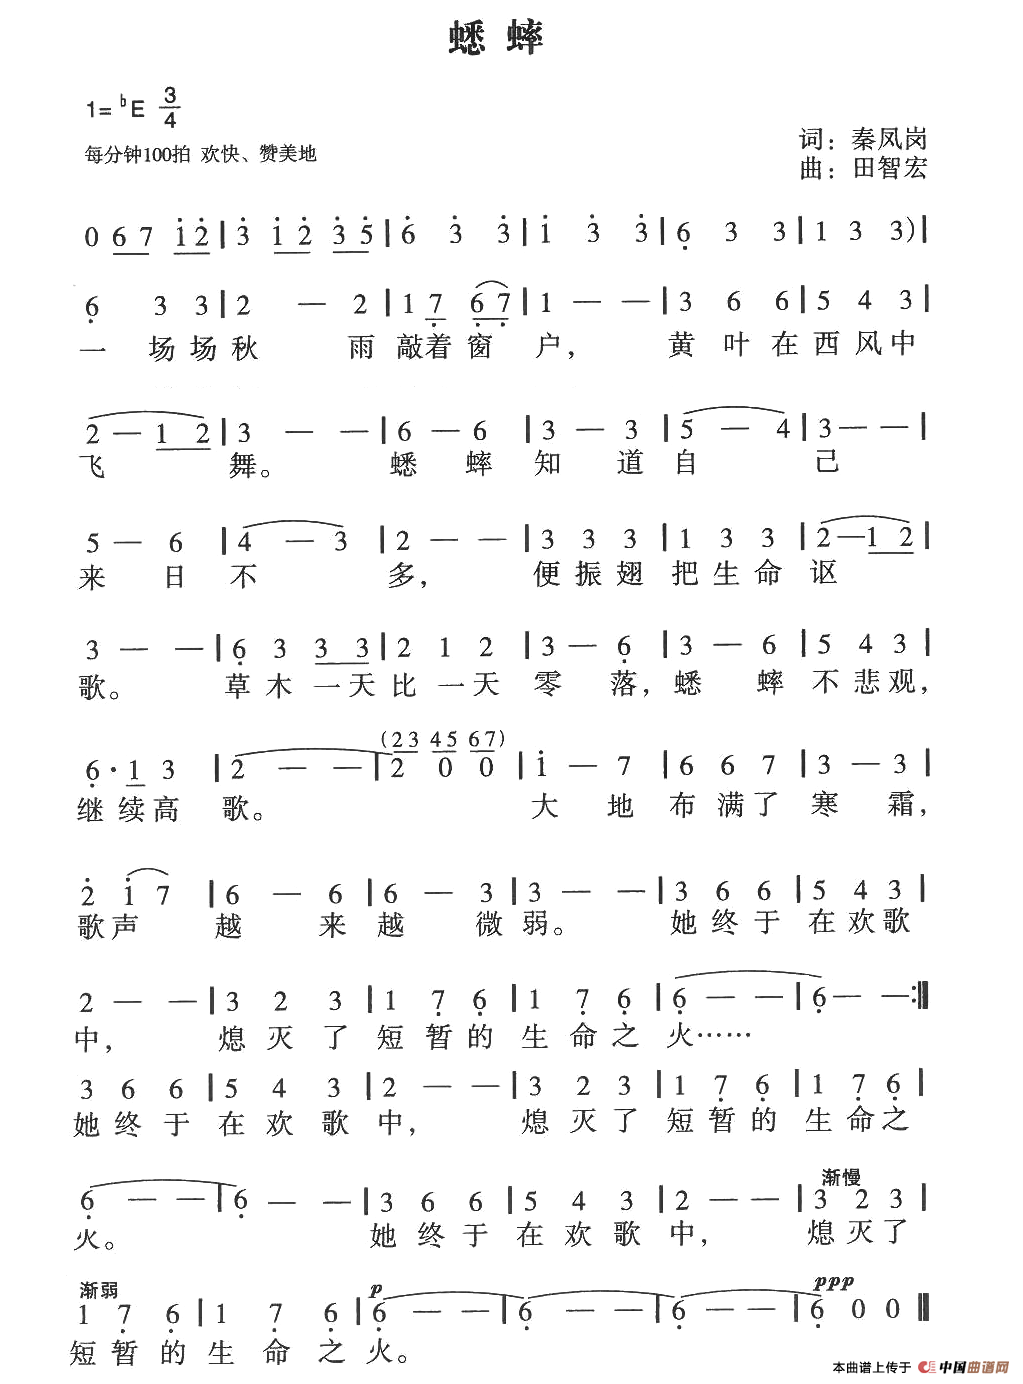 蟋蟀
1=♭E 3/4
每分钟100拍 欢快、赞美地
词：秦凤岗
曲：田智宏
0 6 7 1̇ 2̇ | 3̇ 1̇ 2̇ 3̇ 5̇ | 6̇ 3̇ 3̇ | 1̇ 3̇ 3̇ | 6̣ 3 3 | 1 3 3) |
6̣ 3 3 | 2 — 2 | 1 7̣ 6̣ 7̣ | 1 — — | 3 6 6 | 5 4 3 |
一 场场秋 雨敲着窗 户， 黄叶在西风中
2 — 1 2 | 3 — — | 6 — 6 | 3 — 3 | 5 — 4 | 3 — — |
飞 舞。 蟋 蟀 知 道自 己
5 — 6 | 4 — 3 | 2 — — | 3 3 3 | 1 3 3 | 2 — 1 2 |
来 日 不 多， 便振翅把生命讴
3 — — | 6̣ 3 3 3 | 2 1 2 | 3 — 6̣ | 3 — 6 | 5 4 3 |
歌。 草木一天比一天零 落，蟋 蟀不悲观，
(2 3 4 5 6 7)
6̣ · 1 3 | 2 — — | 2 0 0 | 1̇ — 7 | 6 6 7 | 3 — 3 |
继续高 歌。 大 地布满了寒 霜，
2̇ 1̇ 7 | 6 — 6 | 6 — 3 | 3 — — | 3 6 6 | 5 4 3 |
歌声 越 来越 微弱。 她终于在欢歌
2 — — | 3 2 3 | 1 7̣ 6̣ | 1 7̣ 6̣ | 6̣ — — | 6̣ — — :‖
中， 熄灭了短暂的生命之火……
3 6 6 | 5 4 3 | 2 — — | 3 2 3 | 1 7̣ 6̣ | 1 7̣ 6̣ |
她终于在欢歌中， 熄灭了短暂的生命之
渐慢
6̣ — — | 6̣ — — | 3 6 6 | 5 4 3 | 2 — — | 3 2 3 |
火。 她终于在欢歌中， 熄灭了
渐弱 p ppp
1 7̣ 6̣ | 1 7̣ 6̣ | 6̣ — — | 6̣ — — | 6̣ — — | 6̣ 0 0 ‖
短暂的生命之火。
本曲谱上传于 中国曲谱网